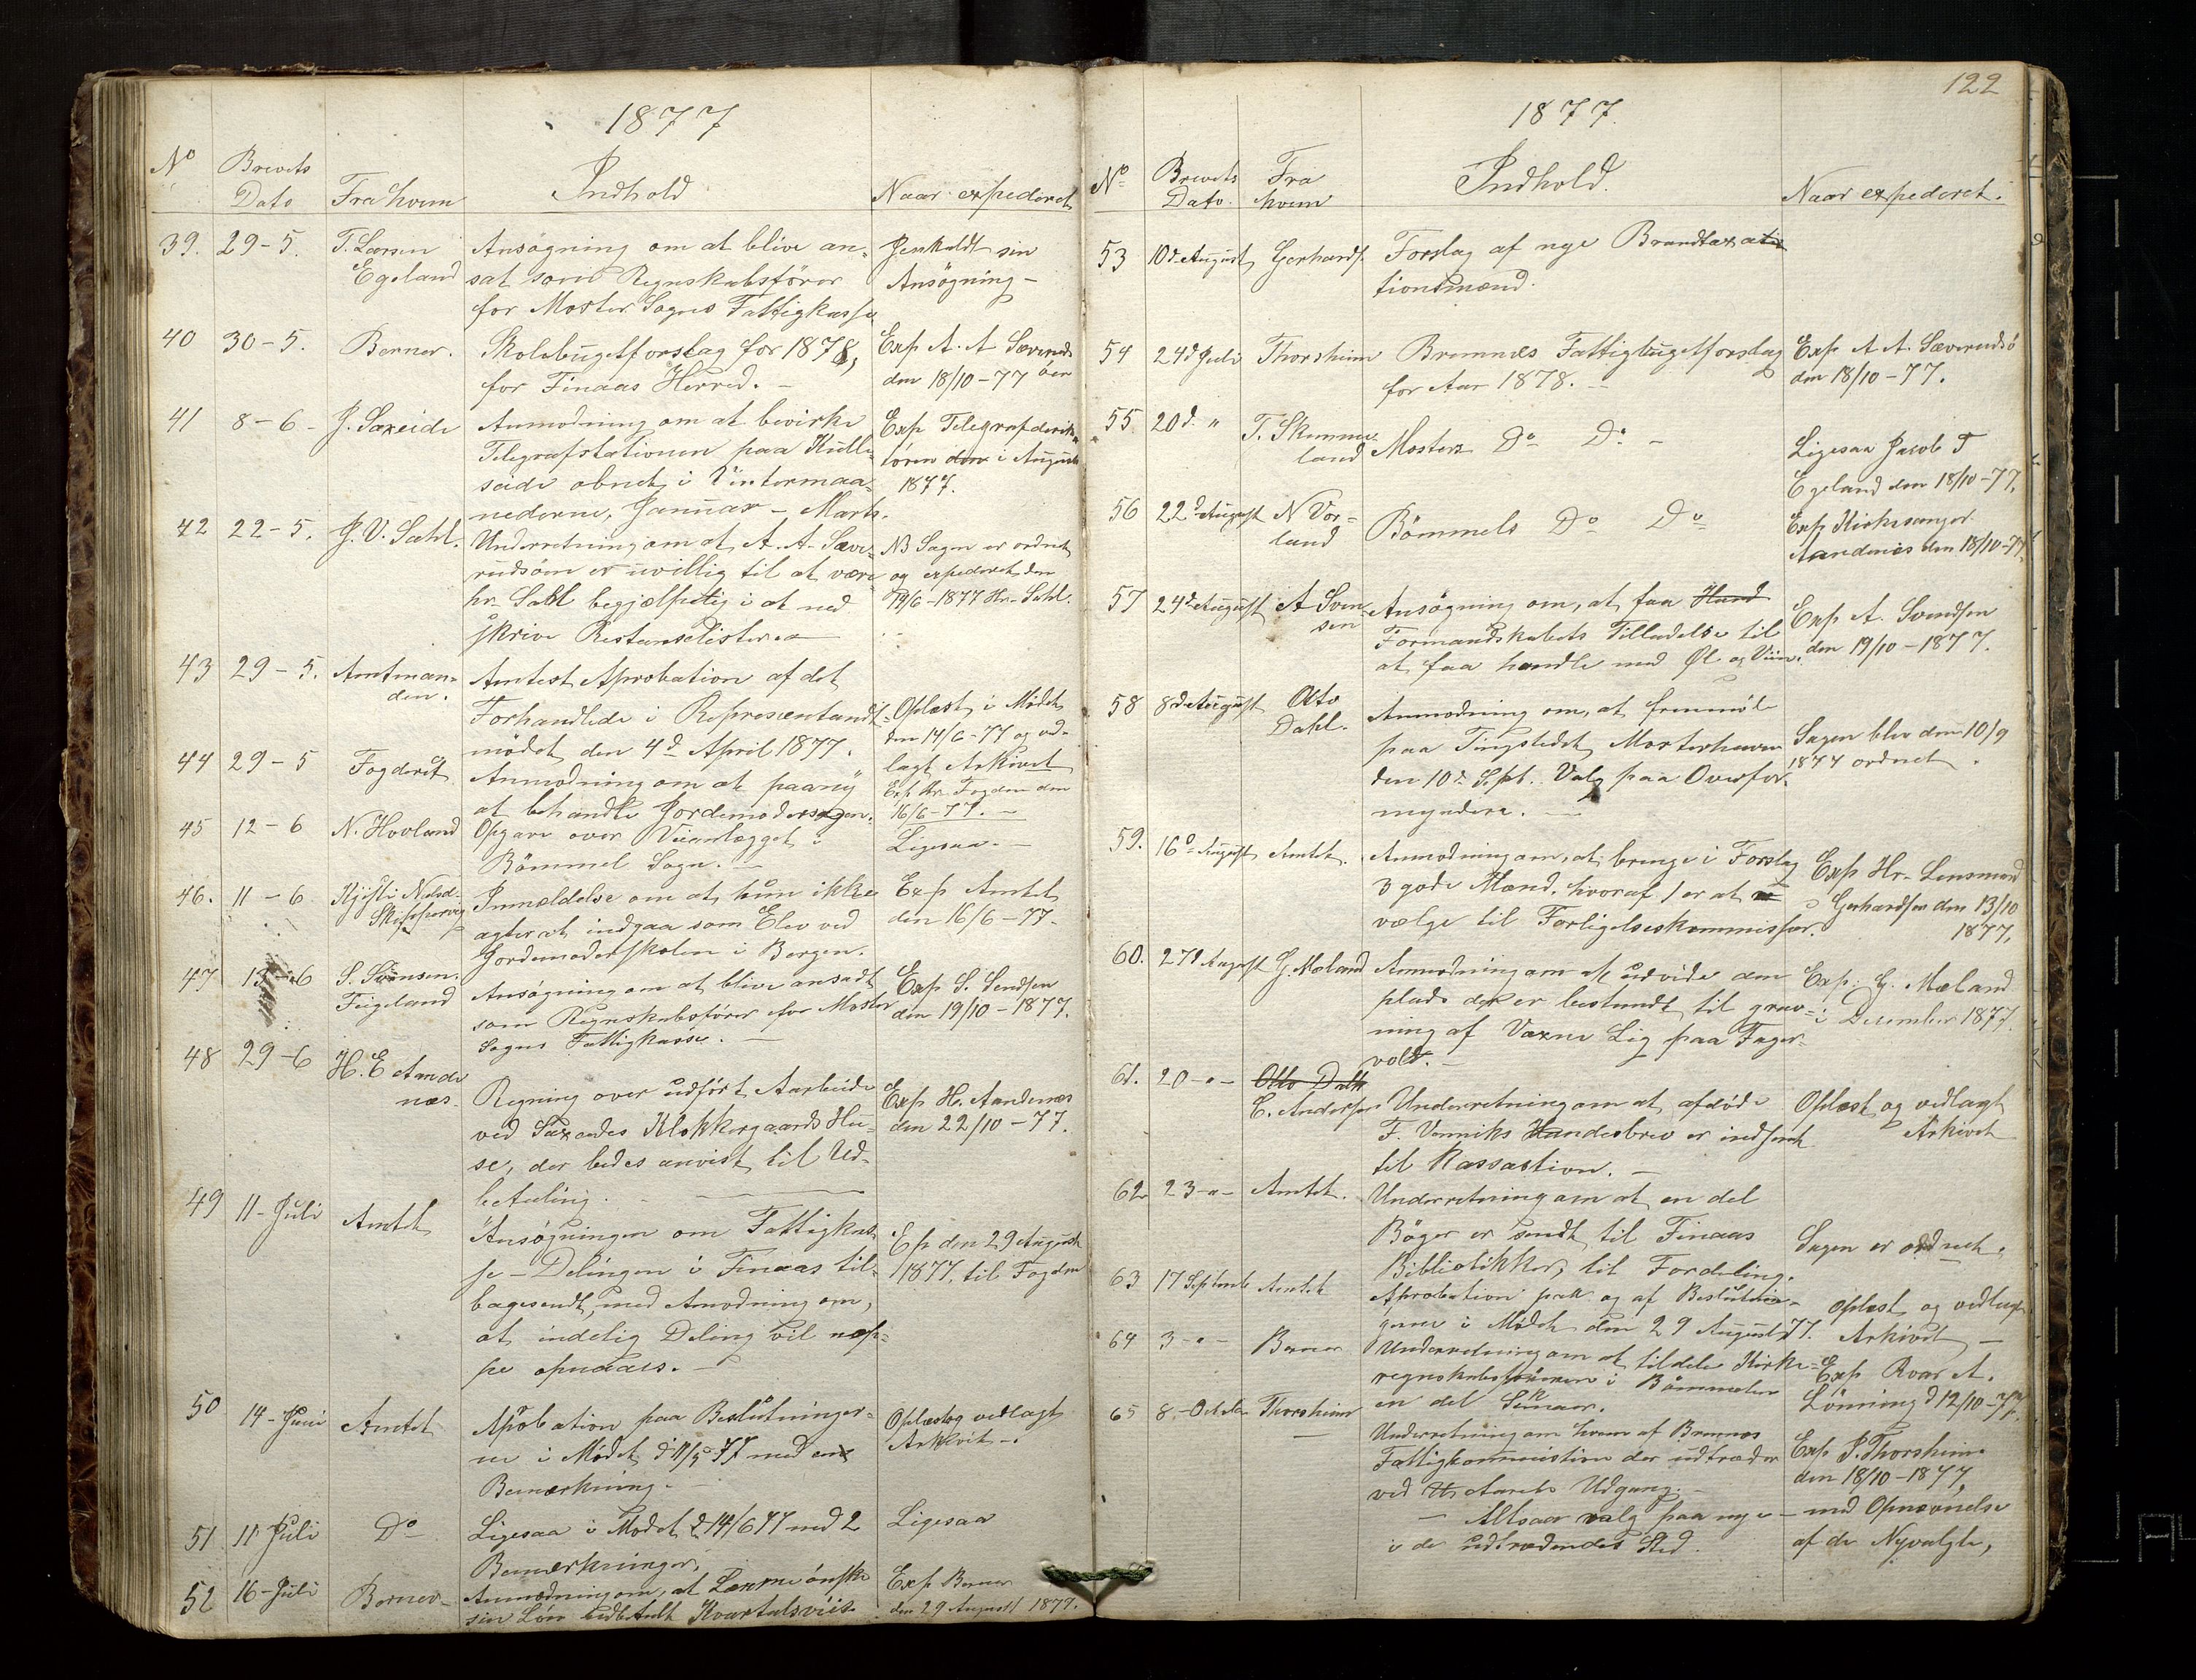 1877
No Brevets Dato Fra hvem Indhold Naar expederet
39. 29-5. T. Larsen Egeland
Ansøgning om at blive an-
sat som Regnskabsfører
for Moster Sogns Fattigkasse
Gjenkaldt sin
Ansøgning -
40 30-5. Berner.
Skolebugetforslag for 1878,
for Finaas Herred. -
Exp A. A Sæverud-
øen
den 18/10-77
41 8-6- J. Saxeide
Anmodning om at bevirke
Telegrafstationen paa Kulle-
seide obnet, i Vintermaa-
nederne, Januar - Marts.
Exp Telegrafderik-
tøren den i August
1877.
42 22-5. J. V. Sahl.
Underretning om at A. A. Sæve-
rudsøen er uvillig til at være
hr. Sahl begjælpelig i at ned
skrive Restanselisterea
NB Sagen er ordnet
og expederet den
19/6-1877 Hr. Sahl.
43 29-5. Amtman-
den.
Amtest Aprobation af det
Forhandlede i Representandt-
mødet den 4d April 1877.
Oplæst i Mødet
den 14/6-77 og ved-
lagt Arkivet
44 29-5 Fogderiet
Anmodning om at paany
at behandle Jordemodersagen.
Exp Hr. Fogden den
16/6-77. -
45 12-6 N. Hovland
Opgave over Veianlægget i
Bömmel Sogn. -
Ligesaa. -
46. 11-6 Kjersti Nelsd.
Skipsservig
Inmeldelse om at hun ikke
agter at indgaa som Elev ved
Jordemoderskolen i Bergen.
Exp Amtet
den 16/6-77-
47 13-6 S. Svensen.
Feigeland
Ansøgning om at blive ansadt
som Regnskabsfører for Moster
Sogns Fattigkasse. -
Exp S. Sendsen
den 19/10-1877.
48 29-6 H. E Aande
næs.
Regning over udført Aarbeide
ved Saxeides Klokkergaards Hu-
se, der bedes anvist til Ud-
betaling.
Exp H. Aandenæs
den 22/10-77.
49 11-Juli Amtet
Ansøgningen om Fattigkas
se-Delingen i Finaas til-
bagesendt, med Amodning om,
at indelig Deling vil nøp-
pe opnaaes. -
Exp den 29 August
1877. til Fogden
50 14-Juni Amtet
Aprobation paa Beslutninger-
ne i Mødet d 11/5 77 med en
Bemærkning. -
Oplæst og vedlagt
Arkivet -.
51 11 Juli Do
Ligesaa i Mødet d 14/6 77 med 2
Bemærkninger,
Ligesaa
52 16-Juli Berner-
Anmodning om, at Lærerne ønske
sin Løn udbetalt Kvartalsviis.
Exp Berner
den 29 August 1877.
122
1877.
No Brevets Dato. Fra hvem Indhold. Naar expederet.
53 10d August Gerhards.
Forslag af nye Brandtaxatio
tionsmænd.
54 24d Juli Thorsheim
Bremnes Fattigbugetforslag
for Aar 1878. -
Exp A A. Sæverudsö
den 18/10-77.
55 20d. " T. Skimme-
land
Mosters Do Do -
Ligesaa Jacob T
Egeland den 18/10-77.
56 22d August N Vor-
land
Bömmels Do Do
Exp Kirkesanger
Aandenes den 18/10-77
57 24d August A Sven
sen
Ansøgning om, at faa Hand
Formandskabets Tilladelse til
at faa handle med Øl og Viin.
Exp A. Svendsen
den 19/10-1877.
58 8d August Otto
Dahl.
Anmodning om, at fremmøde
paa Tingstedet Mosterhavn
den 10d Sept. Valg paa Overfor-
myndere. -
Sagen blev den 10/9
1877 ordnet.
59. 16d August Amtet.
Anmodning om, at bringe i Forslag
3 gode Mænd, hvoraf 1 er at
vælge til Forligelseskommissær.
Exp Hr. Lensmand
Gerhardsen den 13/10
1877.
60. 27d August G. Mæland
Anmodning om at udvide den
plads der er bestemdt til grav-
ning af Vaxne Lig paa Fager-
vold. -
Exp. G. Mæland
i Desember 1877.
61. 20-"- Otto Dahl
E. Andersen
Underretning om at afdöde
F. Venniks Handesbrev er indsendt
til Kassastion. -
Oplæst og vedlagt
Arkivet
62 23-"- Amtet.
Underretning om at en del
Böger er sendt til Finaas
Bibliotikker, til Fordeling.
Sagen er ordnet.
63 17 Septemb Amtet
Aprobation paa og af Beslutnin-
gerne i Mødet den 29 August 77.
Oplæst og vedlagt
Arkivet -
64 3-"- Berner
Underretning om at tildele Kirke-
regnskabsføreren i Bömmelen
en del Semaer.
Exp Roar A.
Lönning d 12/10-77.
65 8.-Octobr Thorsheim
Underretning om hvem af Bremnes
Fattigkommistion der udtræder
ved Aarets Udgang. -
- Altsaa valg paa nye
i de udtrædendes Sted.
Exp P. Thorsheim
den 18/10-1877,
- med Opnævnelse
af de Nyvalgte,